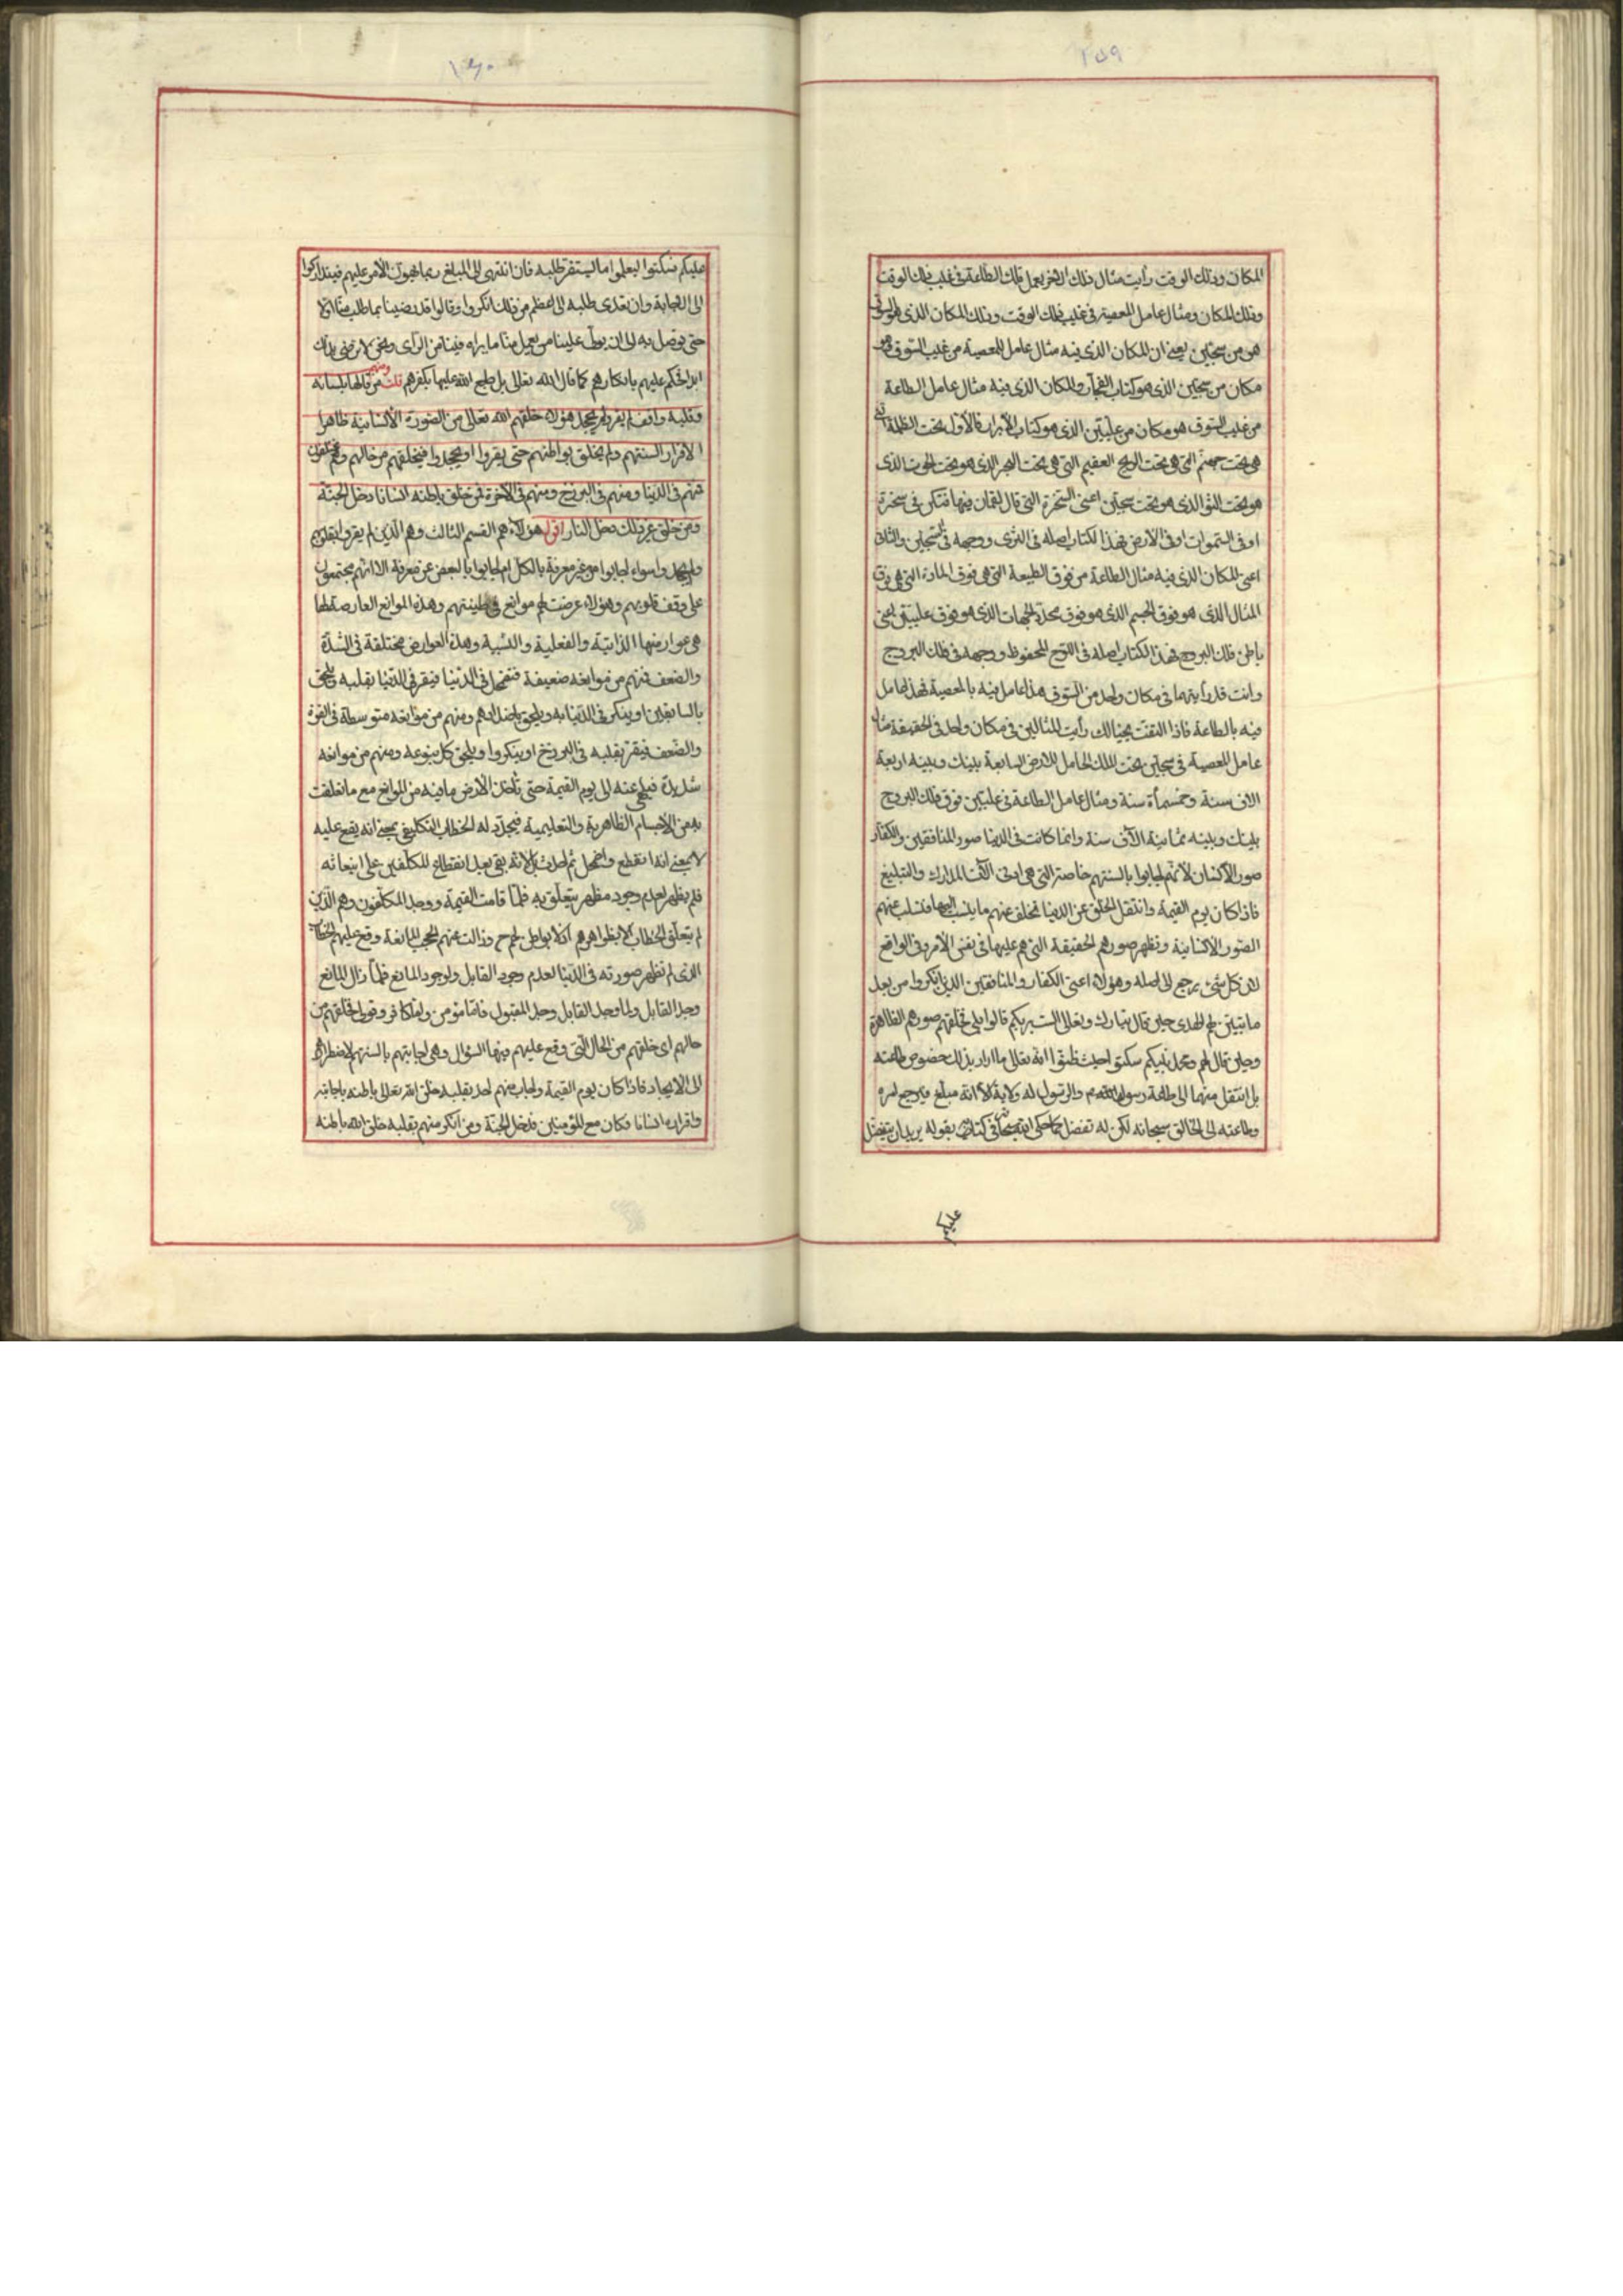 ٢٥٩
المكان وذلك الوقت رأيت مثال ذلك الشخص يعمل تلك الطاعة في غيب ذلك الوقت
وذلك المكان ومثال عامل المعصية في غيب ذلك الوقت وذلك المكان الذي هو في
هو من سجين يعني ان المكان الذي فيه مثال عامل المعصية من غيب السوق هو
مكان من سجين الذي هو كتاب الفجار والمكان الذي فيه مثال عامل الطاعة
من غيب السوق هو مكان من عليين الذي هو كتاب الأبرار فالأول تحت الظلمة التي
هي تحت جهنم التي هي تحت الريح العقيم التي هي تحت البحر الذي هو تحت الحوت الذي
هو تحت الثور الذي هو تحت سجين اعني الصخرة التي قال لقمان فيها فتكن في صخرة
او في السموات او في الأرض فهذا الكتاب اصله في الثرى ووجهه في سجين والثاني
اعني المكان الذي فيه مثال الطاعة من فوق الطبيعة التي هي فوق المادة التي هي فوق
المثال الذي هو فوق الجسم الذي هو فوق محدد الجهات الذي هو فوق عليين اعني
باطن فلك البروج فهذا الكتاب اصله في اللوح المحفوظ ووجهه في فلك البروج
وانت قد رأيتهما في مكان واحد من السوق هذا عامل فيه بالمعصية فهذا عامل
فيه بالطاعة فاذا التفت بخيالك رأيت المثالين في مكان واحد في الحقيقة مثال
عامل المعصية في سجين تحت الملك الحامل للارض السابعة بينك وبينه اربعة
الاف سنة وخمسمأة سنة ومثال عامل الطاعة في عليين فوق فلك البروج
بينك وبينه ثمانية الآف سنة وانما كانت في الدنيا صور المنافقين والكفار
صور الانسان لأنهم اجابوا بالسنتهم خاصة التي هي ادنى آلات المدارك والتبليغ
فاذا كان يوم القيمة وانتقل الخلق عن الدنيا تخلف عنهم ما ينسب اليها فتسلب عنهم
الصور الانسانية وتظهر صورهم الحقيقة التي هم عليها في نفس الأمر في الواقع
لان كل شيء يرجع الى اصله وهؤلاء اعني الكفار والمنافقين الذين انكروا من بعد
ما تبين لهم الهدى حين قال تبارك وتعالى الست بربكم قالوا بلى فخلقهم صورهم الظاهرة
وحين قال لهم ومحمد نبيكم سكتوا حيث ظنوا انه تعالى ما اراد بذلك خصوص طاعته
بل انتقل منها الى طاعة رسول الله ص والرسول له ولاية الا انه مبلغ فيرجع امره
وطاعته الى الخالق سبحانه لكن له تفضل كما حكى الله سبحانه في كتابه بقوله يريد ان يتفضل
عليكم
١٦٠
عليكم فسكتوا ليعلموا ما يستقر طلبه فان انتهى الى المبلغ ربما يهون الأمر عليهم فيتداركوا
الى الاجابة وان تعدى طلبه الى اعظم من ذلك انكروا وقالوا قد رضينا بما طلب منا اولا
حتى توصل به الى ان يولي علينا من يعمل منا ما يراه فينا من الرأى ونحن لا نرضى بذلك
ابدا فحكم عليهم بانكارهم كما قال الله تعالى بل طبع الله عليها بكفرهم قلت ومنهم من قالها بلسانه
وقلبه واقف لم يقر ولم يجحد هؤلاء خلقهم الله تعالى من الصورة الانسانية ظاهرا
لاقرار السنتهم ولم يخلق بواطنهم حتى يقروا او يجحدوا فيخلقهم من حالهم وهم مختلفون
فمنهم في الدنيا ومنهم في البرزخ ومنهم في الآخرة فمن خلق باطنه انسانا دخل الجنة
ومن خلق غير ذلك دخل النار اقول هؤلاء هم القسم الثالث وهم الذين لم يقروا بقلوبهم
ولم يجحدوا سواء اجابوا من غير معرفة بالكل ام اجابوا بالبعض عن معرفة الا انهم مجتمعون
على وقف قلوبهم وهؤلاء عرضت لهم موانع في طينتهم وهذه الموانع العارضة لها
هي عوارضها الذاتية والفعلية والنسبية وهذه العوارض مختلفة في الشدة
والضعف فمنهم من موانعه ضعيفة فتضمحل في الدنيا فيقر في الدنيا بقلبه ويلحق
بالسابقين او ينكر في الدنيا به ويلحق باضدادهم ومنهم من موانعه متوسطة في القوة
والضعف فيقر بقلبه في البرزخ او ينكروا ويلحق كل بنوعه ومنهم من موانعه
شديدة فيلهى عنه الى يوم القيمة حتى تأكل الأرض ما فيه من الموانع مع ما تعلقت
به من الأجسام الظاهرية والتعليمية فيجدد له الخطاب التكليفي بمعنى انه يقع عليه
لا بمعنى انه انقطع واضمحل ثم احدث بل لانه بقى بعد انقطاع المكلفين على انبعاثه
فلم يظهر لعدم وجود مظهر يتعلق به فلما قامت القيمة ووجد المكلفون وهم الذين
لم يتعلق الخطاب الا بظواهرهم اذ لا بواطن لهم ح وزالت عنهم الحجب المانعة وقع عليهم الخطاب
الذي لم تظهر صورته في الدنيا لعدم وجود القابل ولوجود المانع فلما زال المانع
وجد القابل ولما وجد القابل وجد المقبول فاما مؤمن واما كافر وقولي فخلقهم من
حالهم اي خلقهم من الحال التي وقع عليهم فيها السؤال وهي اجابتهم بالسنتهم لاضطرارهم
الى الايجاد فاذا كان يوم القيمة واجاب منهم احد بقلبه خلق الله تعالى باطنه باجابته
واقراره انسانا فكان مع المؤمنين فدخل الجنة ومن انكر منهم بقلبه خلق الله باطنه